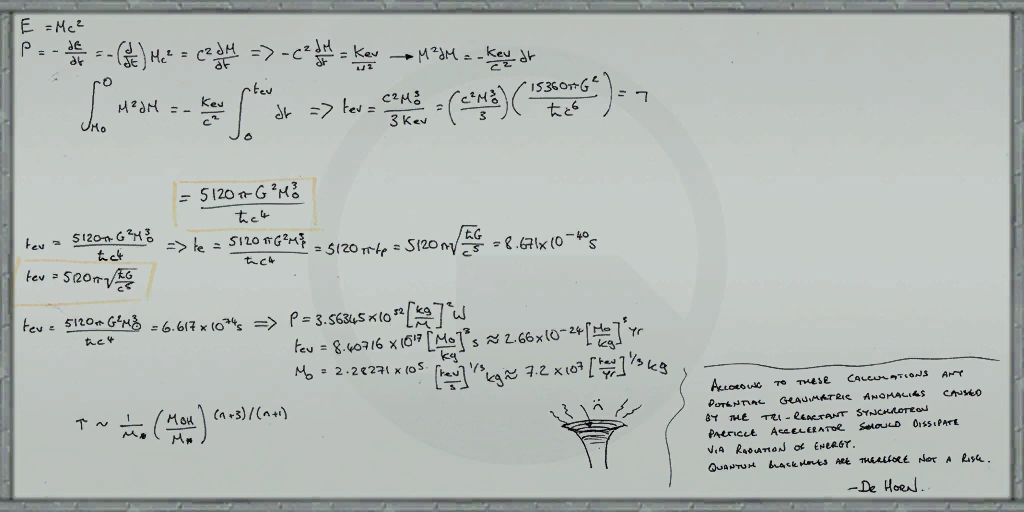 E = Mc²
P = - dE/dt = -(d/dt) Mc² = c² dM/dt => -c² dM/dt = Kev/M² → M²dM = - Kev/c² dt
∫_{M₀}^{0} M²dM = - Kev/c² ∫_{0}^{tev} dt => tev = c²M₀³/3Kev = (c²M₀³/3)(15360πG²/ħc⁶) = ㄱ
= 5120πG²M₀³/ħc⁴
tev = 5120πG²M₀³/ħc⁴ => te = 5120πG²Mp³/ħc⁴ = 5120πtp = 5120π√(ħG/c⁵) = 8.671×10⁻⁴⁰s
tev = 5120π√(ħG/c⁵)
tev = 5120πG²M₀³/ħc⁴ = 6.617×10⁷⁴s => P = 3.56345×10³²[kg/M]²W
tev = 8.40716×10¹⁷[M₀/kg]³s ≈ 2.66×10⁻²⁴[M₀/kg]³yr
M₀ = 2.28271×10⁵[tev/s]^(1/3) kg ≈ 7.2×10⁷[tev/yr]^(1/3) kg
T ~ 1/M* (MBH/M*)^((n+3)/(n+1))
ACCORDING TO THESE CALCULATIONS ANY
POTENTIAL GRAVIMETRIC ANOMALIES CAUSED
BY THE TRI-REACTANT SYNCHROTRON
PARTICLE ACCELERATOR SHOULD DISSIPATE
VIA RADIATION OF ENERGY.
QUANTUM BLACKHOLES ARE THEREFORE NOT A RISK.
-De Horn..